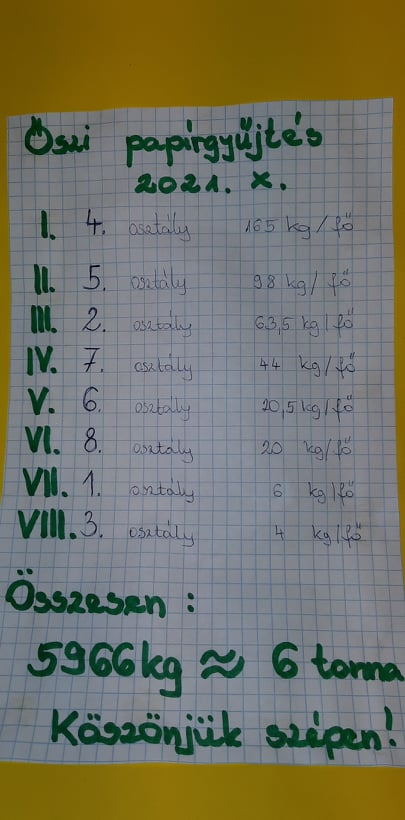 Őszi papírgyűjtés
2021. X.
I. 4. osztály 165 kg/fő
II. 5. osztály 98 kg/fő
III. 2. osztály 63,5 kg/fő
IV. 7. osztály 44 kg/fő
V. 6. osztály 20,5 kg/fő
VI. 8. osztály 20 kg/fő
VII. 1. osztály 6 kg/fő
VIII. 3. osztály 4 kg/fő
Összesen:
5966kg ≈ 6 tonna
Köszönjük szépen!